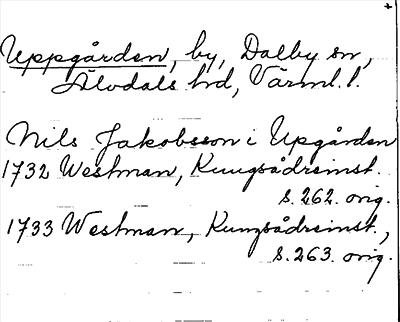 Uppgården, by, Dalby sn,
Älvdals hd, Värml. l.
Nils Jakobsson i Upgården
1732 Westman, Kungsådreinst.
s. 262. orig.
1733 Westman, Kungsådreinst.,
s. 263. orig.